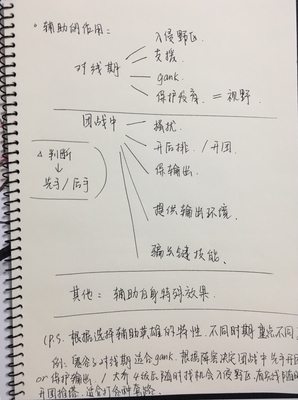 辅助的作用：
入侵野区
支援
对线期
gank.
保护发育. = 视野.
团战中
骚扰
开后排. / 开团
△ 判断
↓
先手/后手
保输出.
提供输出环境.
骗关键技能.
其他： 辅助自身特殊效果.
(P.S. 根据选择辅助英雄的特性. 不同时期重点不同
例： 对线期适合gank. 根据阵容决定团战中先手开团
or 保护输出 / 4级后随时找机会入侵野区.
开团推塔.